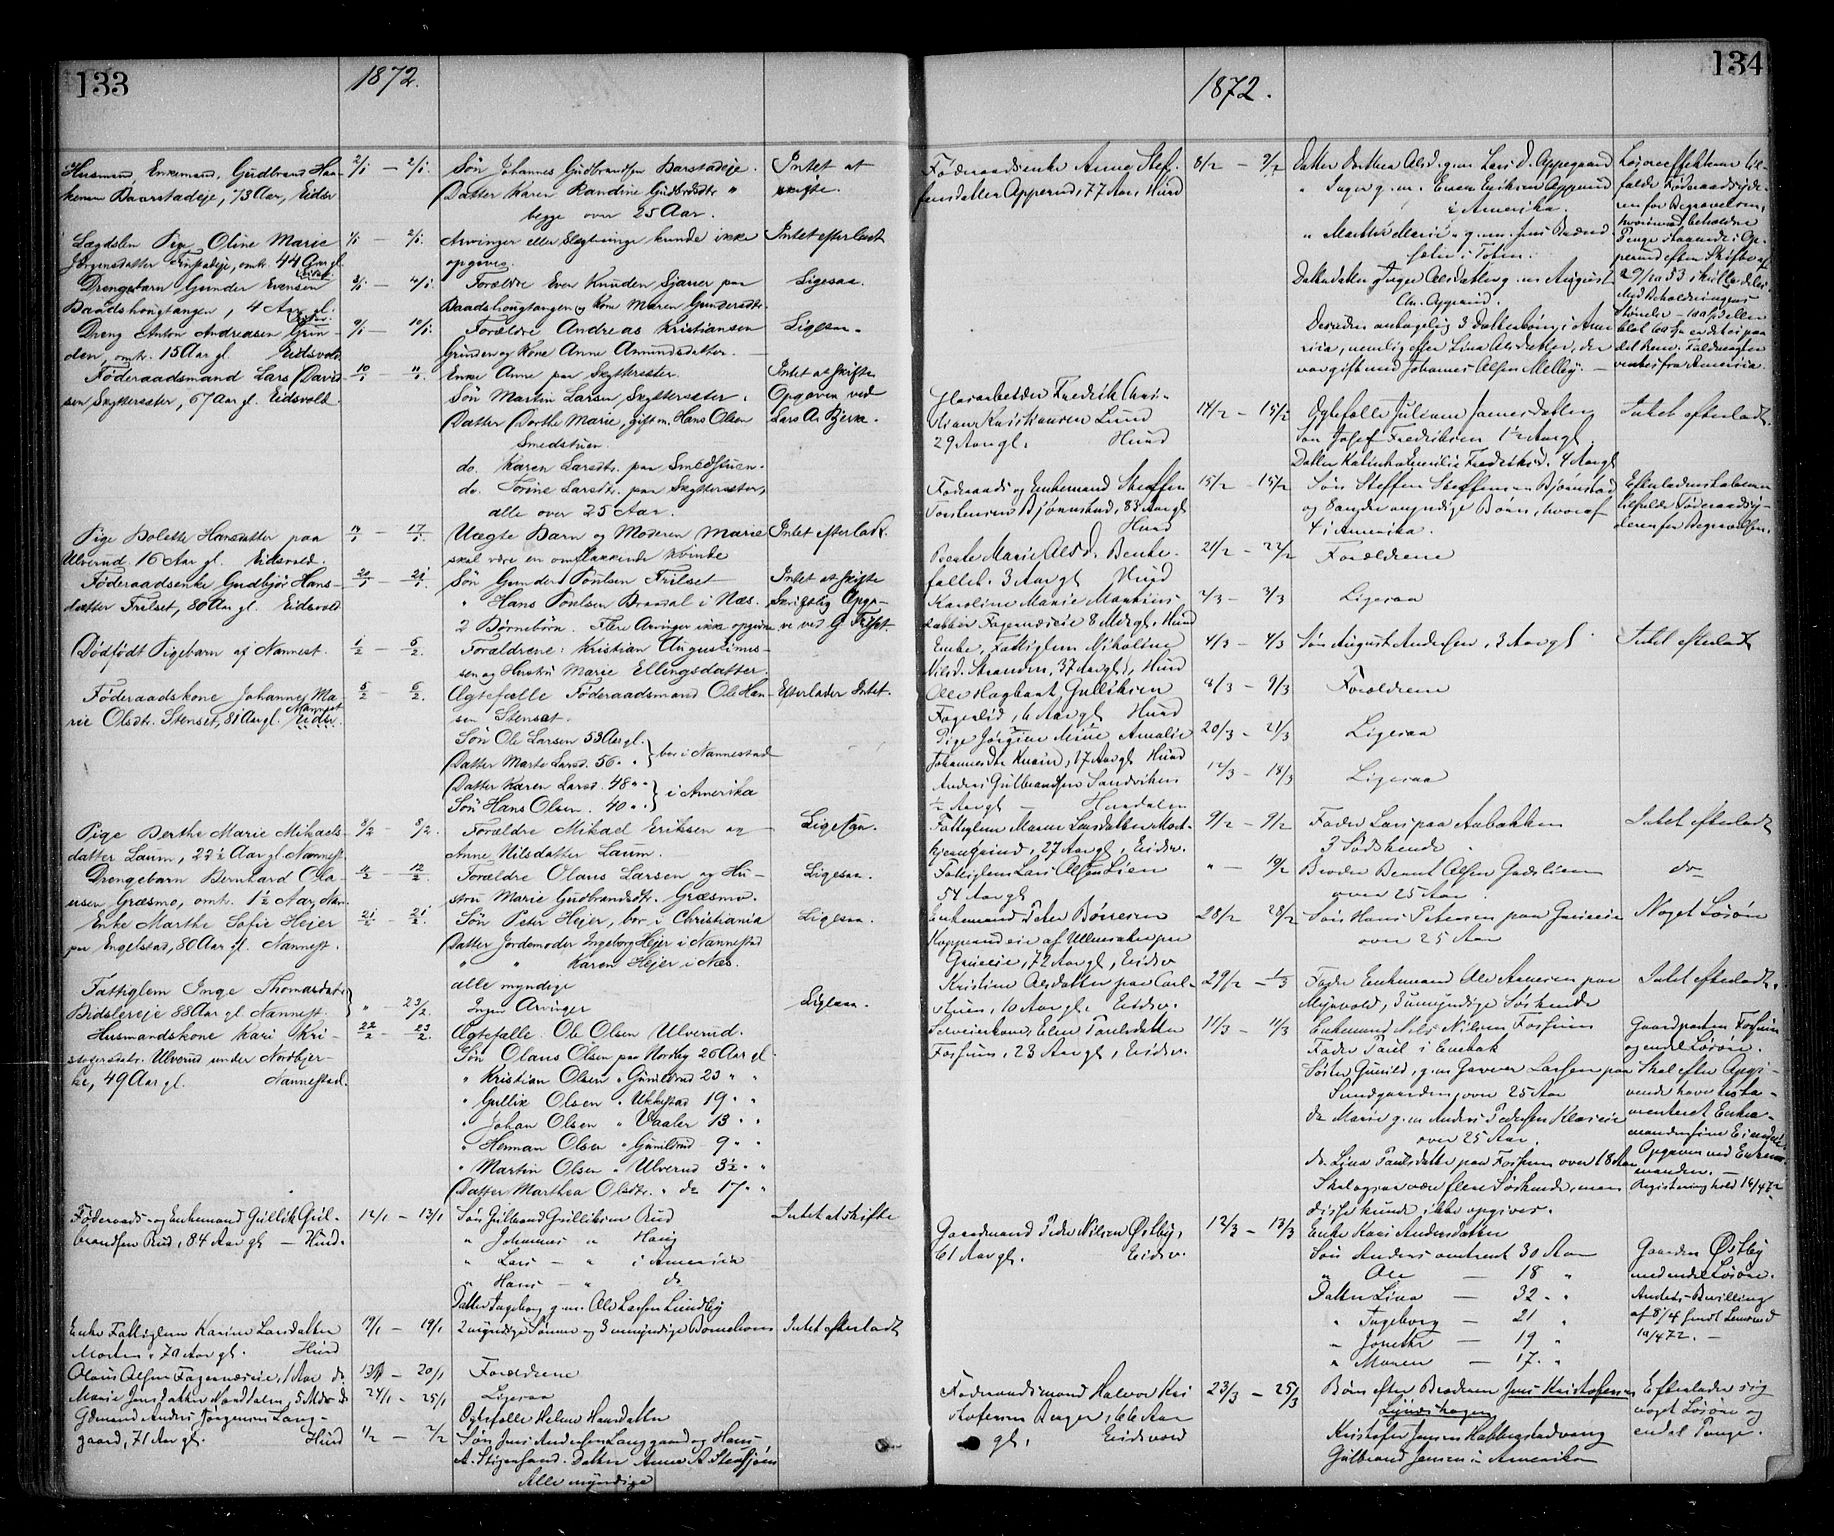 133
1872.
Husmand, Enkemand, Gudbrand Haa-
kensen Baarstadeje, 73 Aar, Eidsv
2/1 — 2/1.
Søn Johannes Gudbrandsen Barstadeje.
Datter Karen Randine Gudbrdsdtr "
begge over 25 Aar.
Intet at
skifte.
Lægdslem Pige Oline Marie
Jørgensdatter Finstadeje, omtr. 44 Aar gl.
1/1 — 2/1.
Arvinger eller Slægtninge kunde ikke
opgives.
Intet efterladt
Drengebarn Gunder Evensen
Baadshougtangen, 4 Aar gl.
3/1 — 4/1.
Forældre Even Knudsen Sjaner paa
Baadshougtangen og Kone Maren Gundersdtr.
Ligesaa.
Dreng Anton Andreasen Grin-
den, omtr. 15 Aar gl. Eidsvold
9/1 — 10/1.
Forældre Andreas Kristiansen
Grinden og Kone Anne Amundsdatter.
Ligesaa.
Føderaadsmand Lars David-
sen Skyttersæter, 67 Aar gl. Eidsvold.
10/1 — 11/1.
Enke Anne paa Skyttersæter.
Søn Martin Larsen Skyttersæter.
Datter Dorthe Marie, gift m. Hans Olsen
Smedstuen.
do. Karen Larsdtr. paa Smedstuen.
do. Sorine Larsdtr. paa Skyttersæter,
alle over 25 Aar.
Intet at skifte
Opgaven ved
Lars A. Bjerke.
Pige Bolette Hansdatter paa
Ulverud 16 Aar gl. Eidsvold.
14/1 — 17/1.
Uægte Barn og Moderen Marie
skal være en omflakkende Kvinde
Intet efterladt.
Føderaadsenke Gudbjør Hans-
datter Frilset, 80 Aar gl. Eidsvold
20/1 — 21/1.
Søn Gunder Poulsen Frilset
" Hans Poulsen Braadal i Næs.
2 Børnebørn. Flere Arvinger ikke opgivne
Intet at skifte
Skriftlig Opga-
ve ved G. Frilset.
Dødfødt Pigebarn af Nannest.
1/2 — 5/2.
Forældrene: Kristian Augustinus-
sen og Hustru Marie Ellingsdatter.
Føderaadskone Johanne Ma-
rie Olsdtr. Stenset, 81 Aar gl. Nannest
5/2 — 6/2.
Ægtefælle Føderaadsmand Ole Han-
sen Stenset.
Søn Ole Larsen 53 Aar gl.
Datter Marte Larsd. 56 " " } bor i Nannestad
Datter Karen Larsd. 48 " "
Søn Hans Olsen. 40 " " } i Amerika
Efterlader Intet.
Pige Berthe Marie Mikaels-
datter Laum, 22½ Aar gl. Nannest.
8/2 — 8/2.
Forældre Mikael Eriksen og
Anne Nilsdatter Laum.
Ligesaa.
Drengebarn Bernhard Ola-
usen Græsmo, omtr. 1½ Aar, Nan.
11/2 — 12/2.
Forældre Olaus Larsen og Hu-
stru Marie Gudbrandsdtr. Græsmo.
Ligesaa.
Enke Marthe Sofie Hejer
paa Engelstad, 80 Aar gl. Nannest.
21/2 — 21/2.
Søn Peter Hejer, bor i Christiania
Datter Jordemoder Ingeborg Hejer i Nannestad
" " Karen Hejer i Næs.
alle myndige
Ligesaa.
Fattiglem Inge Thomasdatr.
Bidslereje 88 Aar gl. Nannest.
" — 23/2.
Ingen Arvinger
Ligesaa.
Husmandskone Kari Kri-
stofersdatr. Ulverud under Nordbjer-
ke, 49 Aar gl. Nannestad.
22/2 — 23/2.
Ægtefælle Ole Olsen Ulverud.
Søn Olaus Olsen paa Nordby 26 Aar gl.
" Kristian Olsen " Gunildrud 23 " "
" Gullik Olsen " Ukkestad 19 " "
" Johan Olsen " Vaaler 13 " "
" Herman Olsen " Gunildrud 9 " "
" Martin Olsen " Ulverud 3½ " "
Datter Marthea Olsdtr. " do 17 " "
Føderaads- og Enkemand Gullik Gul-
brandsen Rud, 84 Aar gl — Hurd.
12/1 — 13/1
Søn Gulbrand Gulliksen Rud
" Johannes " Haug
" Lars — " i Amerika
" Hans — " do
Datter Ingeborg g.m. Ole Larsen Lundby
Intet at skifte
Enke Fattiglem Karine Larsdatter
Morten, 70 Aar gl. Hurd
19/1 — 19/1
2 myndige Sønner og 3 umyndige Børnebørn
Intet efterladt
Olaus Olsen Fagernæseie, 1 Aar do
13/1 — 20/1
Forældrene
Marie Jensdatter Norddalen, 5 Mdr do
24/1 — 25/1
Ligesaa
Gdmand Anders Jørgensen Lang-
gaard, 71 Aar gl. Hurd
1/2 — 2/2
Ægtefælle Helene Hansdatter
Søn Jens Andersen Langgaard og Hans
A. Stigersand. Datter Anne A. Stensjøen
Alle myndige
134
1872.
Føderaadsenke Anne Stef-
fensdatter Apperud, 77 Aar, Hurd
8/2 — 9/2
Datter Dorthea Olsd. g.m. Lars D. Appegaard
" Inger g.m. Even Eriksen Apperud
i Amerika.
" Marthe Marie " g.m. Jens Brænd
i Toten.
Datterdatter Inger Olsdatter g.m. August
Chr. Apperud.
Desuden antagelig 3 Datterbørn i Ame-
rica, nemlig efter Lina Olsdatter, der
var gift med Johannes Olsen Melby. —
Løsøreeffekterne til-
falde Føderaadsyde-
ren for Begravelsen,
hvorimod beholdne
Penge
Haarbeider Fredrik Chri-
stian Kristiansen Lund
29 Aar gl. Hurd
14/2 — 15/2
Ægtefælle Juliane Jansdatter
Søn Josef Fredriksen 1½ Aar gl.
Datter Kathinka Emilie Fredriksd. 4 Aar gl
Intet efterladt.
Føderaads og Enkemand Steffen
Torstensen Bjørnstad, 83 Aar gl
Hurd
15/2 — 15/2
Søn Steffen Steffensen Bjørnstad
og 8 andre myndige Børn, hvoraf
4 i Amerika.
Efterladenskaberne
tilfalde Føderaadsy-
deren for Begravelsen.
Beate Marie Olsd. Benke-
fallet. 3 Aar gl Hurd
21/2 — 22/2
Forældrene
Karoline Marie Martinius-
datter Fagernæseie 8 Md gl. Hurd
2/3 — 3/3
Ligesaa
Enke, Fattiglem Nikoline
Nilsd. Stranden, 37 Aar gl, Hurd
4/3 — 4/3
Søn August Andersen, 3 Aar gl.
Intet efterladt
Ole Hagbart Gulliksen
Fagerlid, 6 Aar gl Hurd
8/3 — 9/3
Forældrene
Pige Jørgine Mine Amalie
Johannesdtr Knaier, 17 Aar gl Hurd
20/3 — 21/3
Ligesaa
Anders Gulbrandsen Sandviken
½ Aar gl — Hurdalen
12/3 — 18/3
Ligesaa
Fattiglem Maren Larsdatter Mork-
kjerngrind, 27 Aar gl, Eidsv.
9/2 — 9/2
Fader Lars paa Aabakken
3 Sødskende
Intet efterladt
Fattiglem Lars Olsen Lien
54 Aar gl
" — 19/2
Broder Bernt Olsen Gudslien
over 25 Aar.
do
Enkemand Peter Børresen
Kopperudeie af Ullensaker paa
Grueieie, 72 Aar gl, Eidsv
28/2 — 28/2
Søn Hans Petersen paa Grueieie
over 25 Aar
Noget Løsøre
Kristine Olsdatter paa Carl-
stuen, 10 Aar gl. Eidsv.
29/2 — 1/3
Fader Enkemand Ole Arnesen paa
Myrvold, 3 umyndige Søskende
Intet efterladt.
Selveierkone, Elen Paulsdatter
Fossum, 23 Aar gl, Eidsv.
11/3 — 11/3
Enkemand Nils Nilsen Fossum
Fader Paul i Enebak
Søster Gunild, g.m. Gunner Larsen paa
Sundgaarden, over 25 Aar
do Marie g.m. Anders Pedersen Klæveie
over 25 Aar.
do. Lina Paulsdatter paa Fossum over 18 Aar
Skal ogsaa være flere Søskende, men
disse kunde ikke opgives.
Gaardparten Fossum
og endel Løsøre.
Skal efter Opgi-
vende have testa-
menteret Enke-
manden sine Eiendele
Opgaven ved Enke-
manden. —
Registrering hold 14/4 72
Gaardmand Peder Nilsen Østby,
61 Aar gl. Eidsv.
12/3 — 13/3
Enke Kari Andersdatter
Søn Anders omtrent 30 Aar
" Ole — 18 "
Datter Lina — 32 "
" Ingeborg — 21 "
" Jonette — 19 "
" Maren — 17 "
Gaarden Østby
med endel Løsøre.
Uskifte-Bevilling
af 8/4 sendt Lensmd
10/4 72. —
Føderaadsmand Halvor Kri-
stofersen Berger, 66 Aar
gl. Eidsvold
23/3 — 25/3
Børn efter Broderen Jens Kristofersen
Lyneshagen
Kristofer Jensen Habberstadvang
Gulbrand Jensen i Amerika
Efterlader sig
noget Løsøre og
endel Penge.